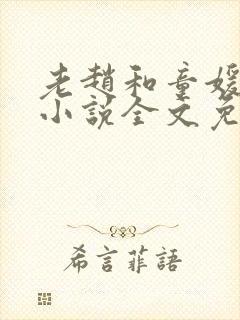 老趙和童媛
小說全文免
希言菲語